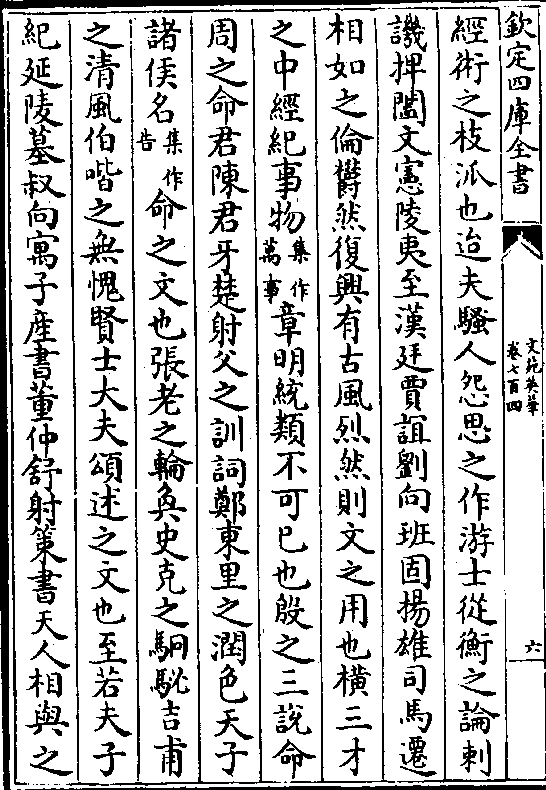 欽定四庫全書
文苑英華
卷七百四
六
經術之枝派也迨夫騷人怨思之作游士從衡之論刺
譏捭闔文憲陵夷至漢廷賈誼劉向班固揚雄司馬遷
相如之倫鬱然復興有古風烈然則文之用也橫三才
之中經紀事物集作萬事章明統類不可已也殷之三說命
周之命君陳君牙楚射父之訓詞鄭東里之潤色天子
諸侯名集作告命之文也張老之輪奐史克之駉駜吉甫
之清風伯喈之無愧賢士大夫頌述之文也至若夫子
紀延陵墓叔向寓子産書董仲舒射策書天人相與之